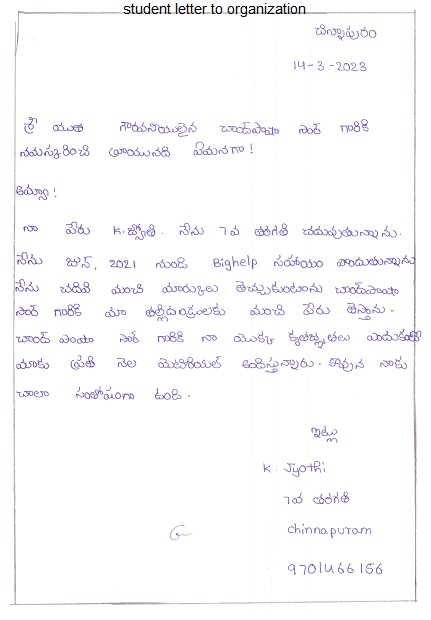 student letter to organization
చిన్నాపురం
14-3-2023
శ్రీ యుత గౌరవనీయులైన చాంద్‌పాషా సార్ గారికి
నమస్కరించి వ్రాయునది ఏమనగా!
అయ్యా!
నా పేరు K. జ్యోతి. నేను 7వ తరగతి చదువుతున్నాను.
నేను జూన్, 2021 నుండి Bighelp సహాయం పొందుతున్నాను
నేను చదివి మంచి మార్కులు తెచ్చుకుంటాను చాంద్‌పాషా
సార్ గారికి మా తల్లిదండ్రులకు మంచి పేరు తెస్తాను.
చాంద్ పాషా సార్ గారికి నా యొక్క కృతజ్ఞతలు ఎందుకంటే
మాకు ప్రతి నెల మెటీరియల్ ఇస్తున్నారు. కావున నాకు
చాలా సంతోషంగా ఉంది.
ఇట్లు
K. Jyothi
7వ తరగతి
chinnapuram
9701466156